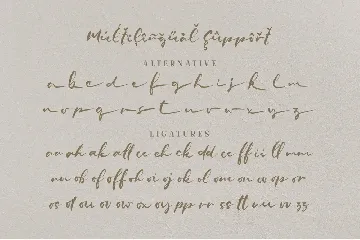 Múĺťıļíñğüàl Şûppôřť
ALTERNATIVE
a b c d e f g h i j k l m
n o p q r s t u v w x y z
LIGATURES
aa ah ak all cc ch ck dd ee ff ii ll mm
nn ob of off oh oi oj ok ol om on oo op or
os ot ou ov ow ox oy pp rr ss tt uu vv zz